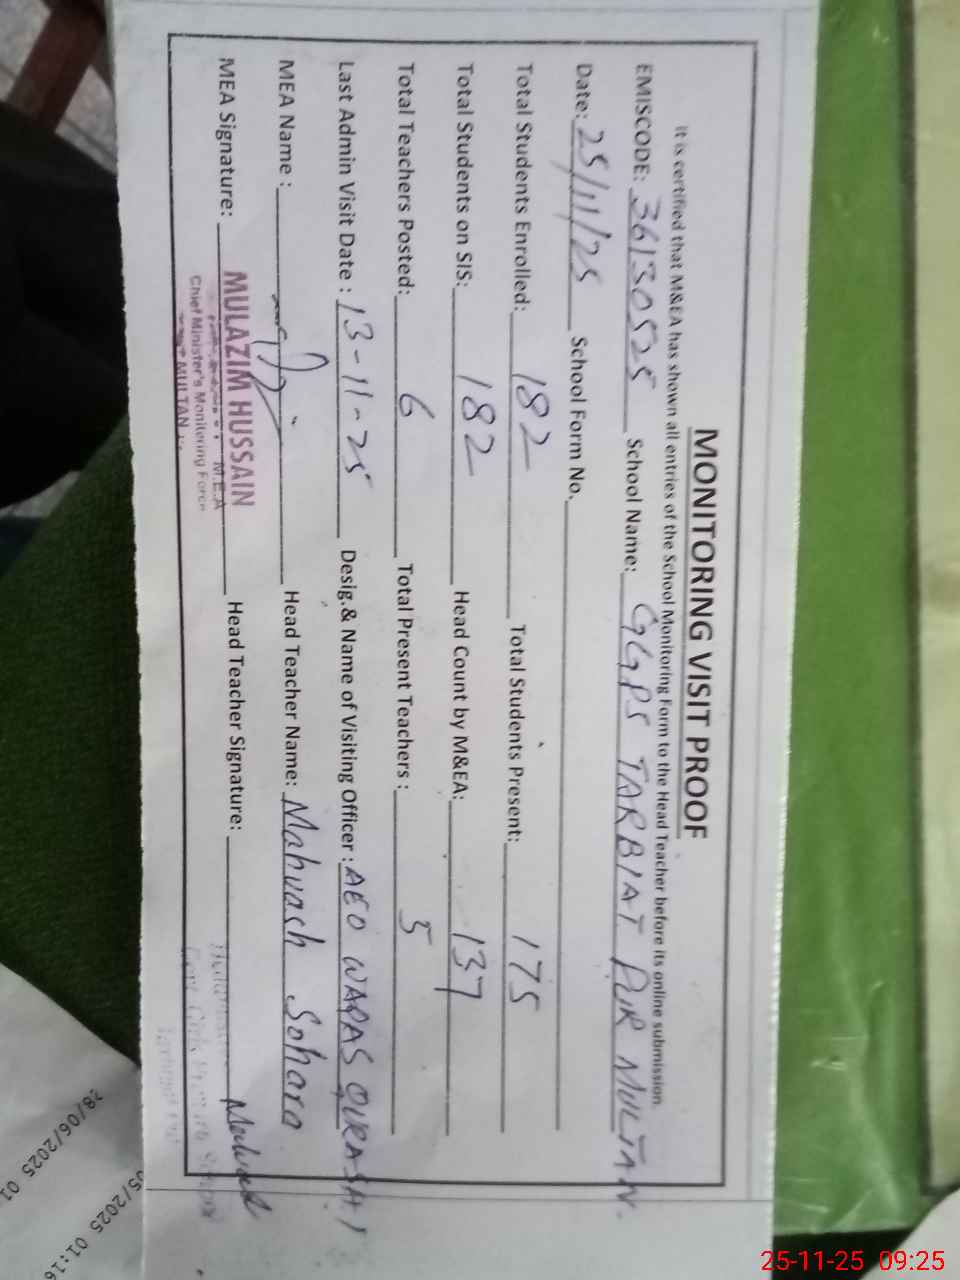 MONITORING VISIT PROOF
It is certified that M&EA has shown all entries of the School Monitoring Form to the Head Teacher before its online submission.
EMISCODE: 36130525 School Name: GGPS TARBIAT PUR MULTAN.
Date: 25/11/25 School Form No.
Total Students Enrolled: 182 Total Students Present: 175
Total Students on SIS: 182 Head Count by M&EA: 137
Total Teachers Posted: 6 Total Present Teachers : 5
Last Admin Visit Date : 13-11-25 Desig.& Name of Visiting Officer : AEO WAQAS QURASHI
MEA Name : Head Teacher Name: Mahvash Sohara
MEA Signature: Head Teacher Signature:
MULAZIM HUSSAIN
M.E.A
Chief Minister's Monitoring Force
MULTAN
28/06/2025 01
05/2025 01:16
25-11-25 09:25